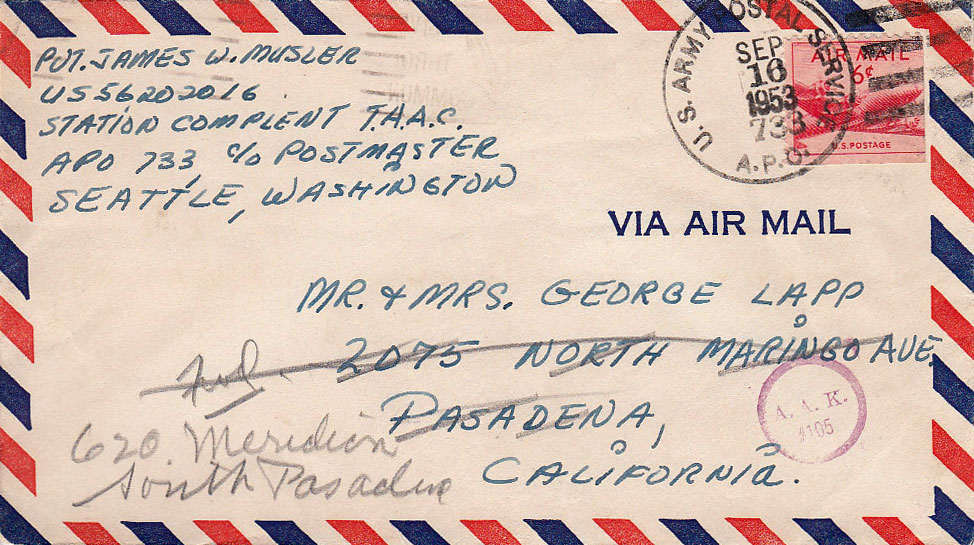 PVT. JAMES W. MUSLER
US56202016
STATION COMPLENT T.A.A.C.
APO 733, c/o POSTMASTER
SEATTLE, WASHINGTON
U.S. ARMY POSTAL SERVICE
SEP
16
1953
733
A.P.O.
AIR MAIL
6¢
U.S. POSTAGE
VIA AIR MAIL
MR. & MRS. GEORGE LAPP
2075 NORTH MARINGO AVE.
PASADENA,
CALIFORNIA.
620 Meridian
South Pasadena
A. A. K.
#105